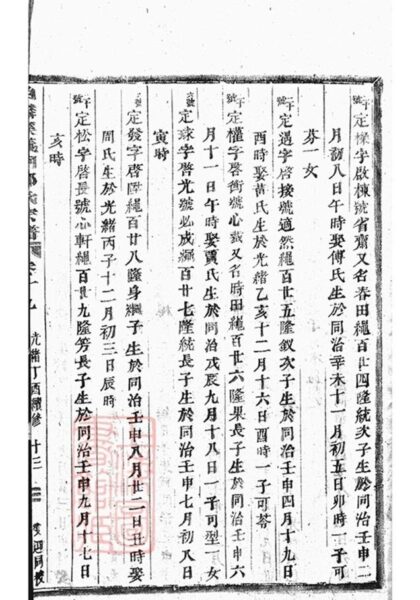 定樑字啟棟號省齋又名春田繩百廿四隆統次子生於同治壬申二
月初八日午時娶傅氏生於同治辛未十一月初五日卯時一子可
芬一女
定遇字啓接號適然繩百廿五隆釵次子生於同治壬申四月十九日
酉時娶黃氏生於光緒乙亥十二月十六日酉時一子可荅
定權字啓衡號心誠又名時田繩百廿六隆果長子生於同治壬申六
月十一日午時娶賈氏生於同治戊辰九月十八日一子可型一女
定球字啓光號必成繩百廿七隆統長子生於同治壬申七月初八日
寅時
定發字啓繩百廿八隆身繼子生於同治壬申八月廿二日丑時娶
周氏生於光緒丙子十二月初三日辰時
定松字啓長號心軒繩百廿九隆芳長子生於同治壬申九月十七日
亥時
氏宗譜 卷十九 光緒丁酉續修 十三